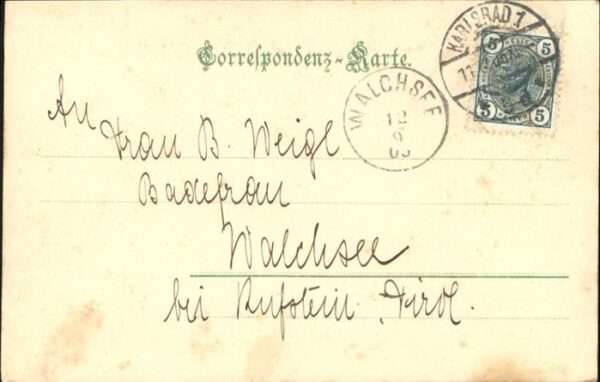 Correspondenz-Karte.
KARLSBAD 1
5 5
5 5
WALCHSEE
12
9
An
Frau B. Weigl
Badefrau
Walchsee
bei Kufstein. Tirol.